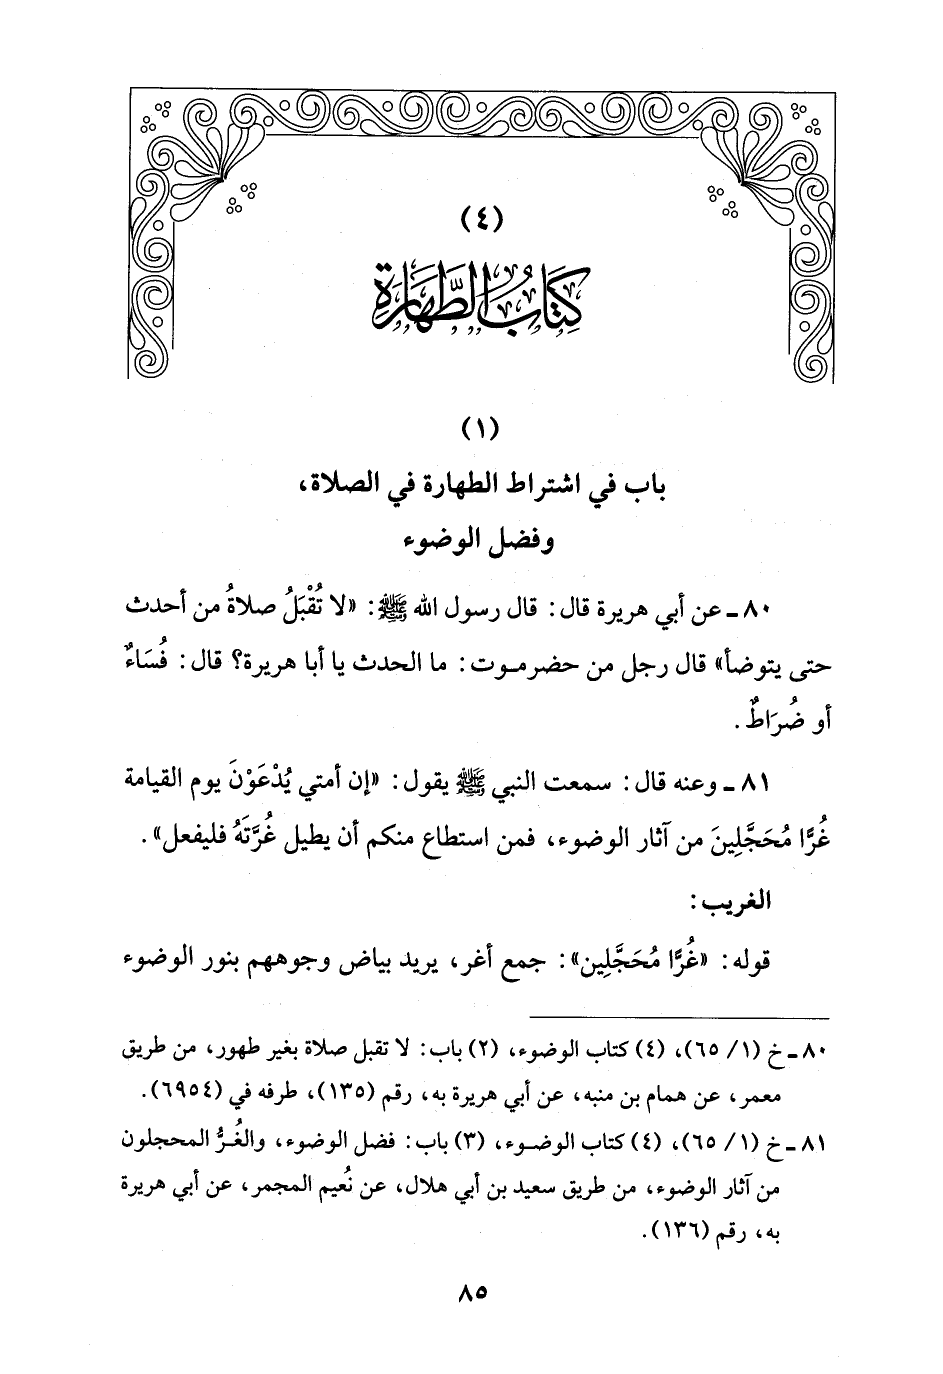 (٤)
كِتَابُ الطَّهَارَةِ
(١)
باب في اشتراط الطهارة في الصلاة،
وفضل الوضوء
٨٠ ـ عن أبي هريرة قال: قال رسول الله ﷺ: «لا تُقْبَلُ صلاةُ من أحدث
حتى يتوضأ» قال رجل من حضرموت: ما الحدث يا أبا هريرة؟ قال: فُسَاءٌ
أو ضُرَاطٌ.
٨١ ـ وعنه قال: سمعت النبي ﷺ يقول: «إن أمتي يُدْعَوْنَ يوم القيامة
غُرًّا مُحَجَّلِينَ من آثار الوضوء، فمن استطاع منكم أن يطيل غُرَّتَهُ فليفعل».
الغريب:
قوله: «غُرًّا مُحَجَّلِين»: جمع أغر، يريد بياض وجوههم بنور الوضوء
٨٠ ـ خ (١/ ٦٥)، (٤) كتاب الوضوء، (٢) باب: لا تقبل صلاة بغير طهور، من طريق
معمر، عن همام بن منبه، عن أبي هريرة به، رقم (١٣٥)، طرفه في (٦٩٥٤).
٨١ ـ خ (١/ ٦٥)، (٤) كتاب الوضوء، (٣) باب: فضل الوضوء، والغُرُّ المحجلون
من آثار الوضوء، من طريق سعيد بن أبي هلال، عن نُعيم المجمر، عن أبي هريرة
به، رقم (١٣٦).
٨٥